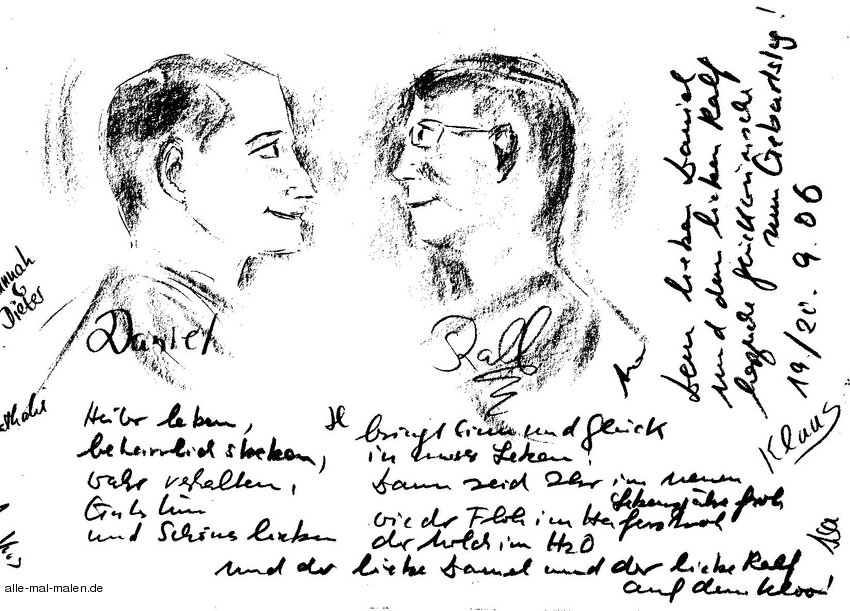 Dem lieben Daniel
und dem lieben Ralf
herzliche Glückwünsche
zum Geburtstag!
19./20. 9. 06
Klaus
Dieter
Daniel
Ralf
leben,
beharrlich streben,
verhalten,
Gutes tun
und Schönes lieben
bringt Sinn und Glück
in unser Leben!
Dann seid Ihr im neuen
Lebensjahr froh
wie der Floh im Haferstroh
der Molch im H2O
und der liebe Daniel und der liebe Ralf
auf dem Kloo!
alle-mal-malen.de